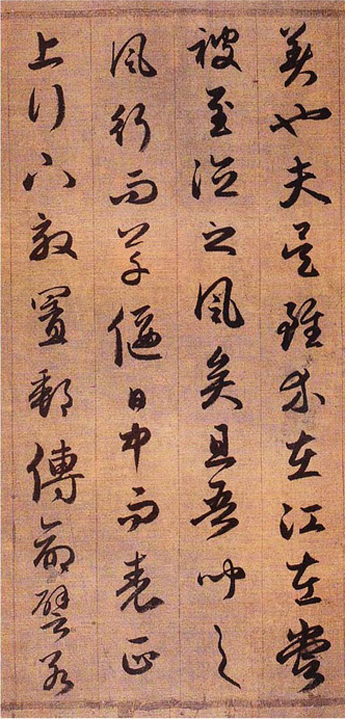 美也夫吳雖在江左嘗
被至治之風矣且吾聞之
風行而草偃日中而表正
上行下效置郵傳命譬若